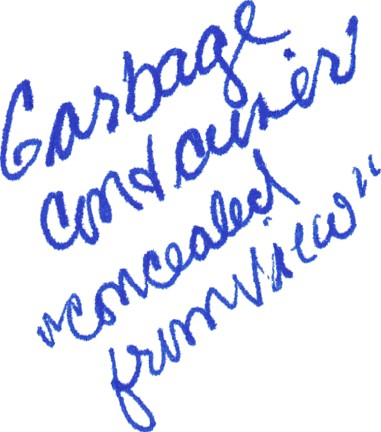 Garbage
container
"concealed
from view"